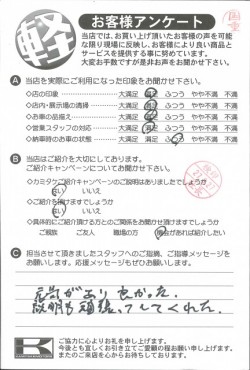 軽
お客様アンケート
当店では、お買い上げ頂いたお客様の声を可能
な限り現場に反映し、お客様により良い商品と
サービスを提供する事に努めています。
大変お手数ですが是非お声をお聞かせ下さい。
A 当店を実際にご利用になった印象をお聞かせ下さい。
◇店の印象 大満足 満足 ふつう やや不満 不満
◇店内・展示場の清掃 大満足 満足 ふつう やや不満 不満
◇お車の品揃え 大満足 満足 ふつう やや不満 不満
◇営業スタッフの対応 大満足 満足 ふつう やや不満 不満
◇納車時のお車の状態 大満足 満足 ふつう やや不満 不満
B 当店はご紹介を大切にしております。
ご紹介キャンペーンについてお聞かせ下さい。
◇カミタケご紹介キャンペーンのご説明はありましたでしょうか
はい いいえ
◇ご紹介を頂けますでしょうか
はい いいえ
◇具体的にご紹介頂ける方とのご関係をお聞かせ頂けますでしょうか
ご親族 ご友人 職場の方 機会があれば紹介したい
C 担当させて頂きましたスタッフへのご指摘、ご指導メッセージを
お願いします。応援メッセージもぜひお願いします。
元気があり良かった。
説明も頑張ってしてくれた。
K
ご協力に心よりお礼を申し上げます。
今後とも宜しくお引き立てご愛顧の程お願い申し上げます。
またのご来店を心からお待ちしております。